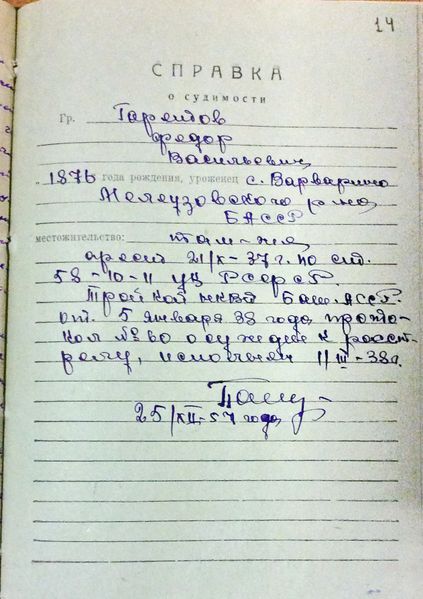 14
СПРАВКА
о судимости
Гр.
Федор
Васильевич
1876 года рождения, уроженец с. Варварино
Мелеузовского р-на
БАССР
местожительство: там-же
арест 21/X-37 г. по ст.
58-10-11 УК РСФСР.
Тройкой НКВД Баш.АССР.
от 5 января 38 года, прото-
кол № 60 осужден к расст-
релу, исполнен 11/III-38 г.
25/XII-57 года